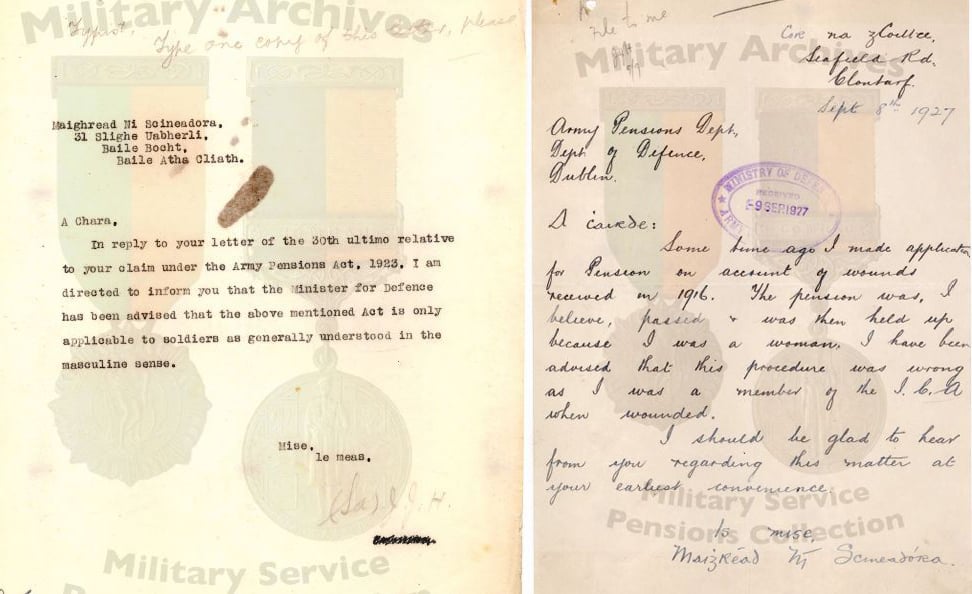 Military Archives
Typist,
Type one copy of this letter, please
Maighread Ni Scineadora,
31 Slighe Uabherli,
Baile Bocht,
Baile Atha Cliath.
A Chara,
In reply to your letter of the 30th ultimo relative
to your claim under the Army Pensions Act, 1923, I am
directed to inform you that the Minister for Defence
has been advised that the above mentioned Act is only
applicable to soldiers as generally understood in the
masculine sense.
Mise,
le meas,
Military Service
to me
Military Archives
na gCoillte,
Seafield Rd.
Clontarf.
Sept 8th 1927
Army Pensions Dept,
Dept of Defence,
Dublin.
MINISTRY OF DEFEN
RECEIVED
-9 SEP 1927
ARMY
A carde:
Some time ago I made application
for Pension on account of wounds
received in 1916. The pension was, I
believe, passed & was then held up
because I was a woman. I have been
advised that this procedure was wrong
as I was a member of the I.C.A
when wounded.
I should be glad to hear
from you regarding this matter at
your earliest convenience.
Military Service
Pensions Collection
Is mise,
Maigréad Ní Scineadóra.